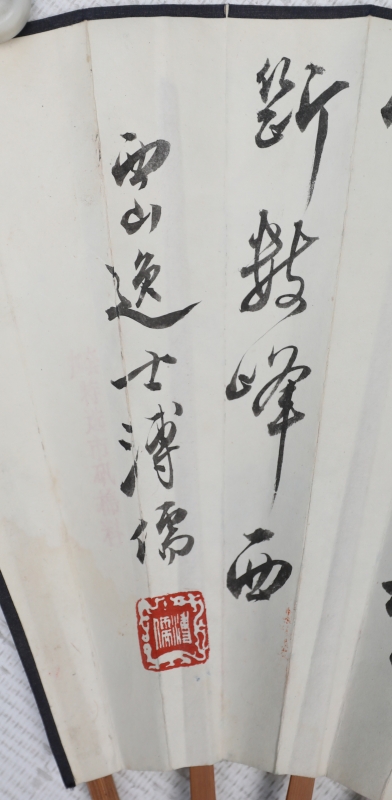 斷數峰西
西山逸士溥儒
溥儒